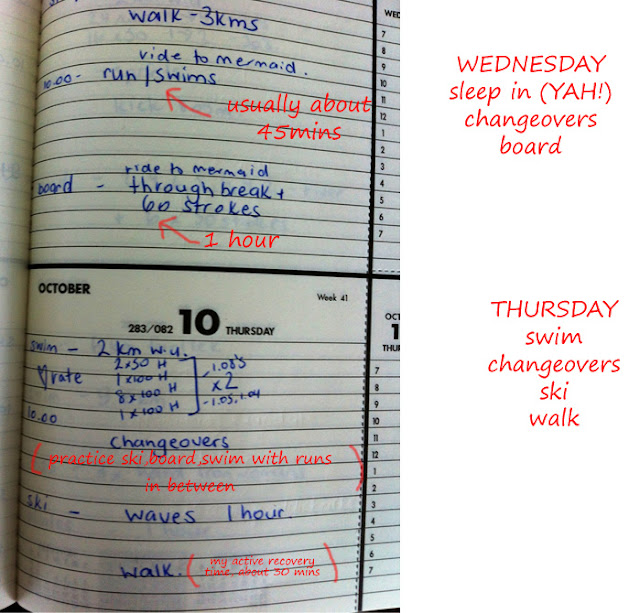 walk - 3kms
ride to mermaid.
10.00 - run / swims
usually about
45mins
ride to mermaid
board - through break +
60 strokes
1 hour
WED
7
8
9
10
11
12
1
2
3
4
5
6
7
WEDNESDAY
sleep in (YAH!)
changeovers
board
OCTOBER
Week 41
283/082 10 THURSDAY
swim - 2km w.u.
2 x 50 H
rate 1 x 100 H
8 x 100 H
1 x 100 H
1.08's
x 2
1.05, 1.04
10.00
changeovers
(practice ski,board,swim with runs
in between)
ski - waves 1 hour.
walk. (my active recovery
time, about 30 mins)
OCT
7
8
9
10
11
12
1
2
3
4
5
6
7
THURSDAY
swim
changeovers
ski
walk